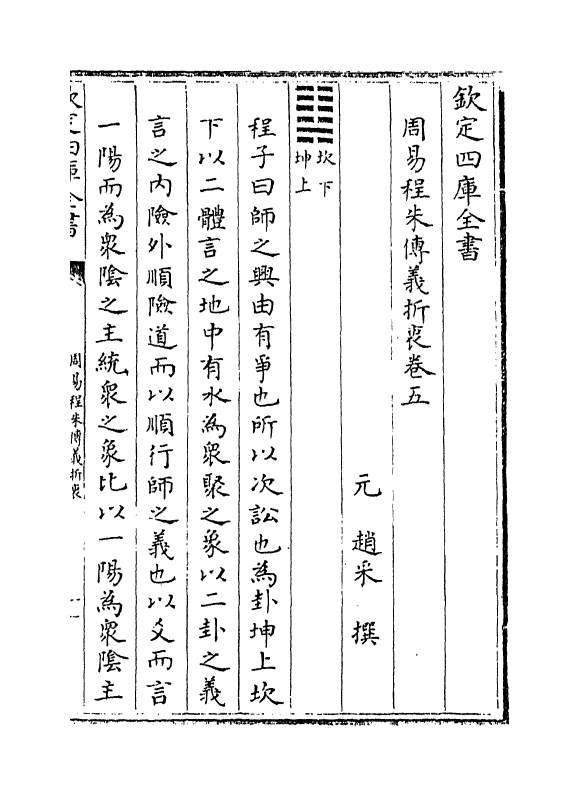 欽定四庫全書
周易程朱傳義折衷卷五
元 趙采 撰
䷆
坎下
坤上
程子曰師之興由有爭也所以次訟也為卦坤上坎
下以二體言之地中有水為衆聚之象以二卦之義
言之內險外順險道而以順行師之義也以爻而言
一陽而為衆陰之主統衆之象比以一陽為衆陰主
欽定四庫全書
周易程朱傳義折衷
一